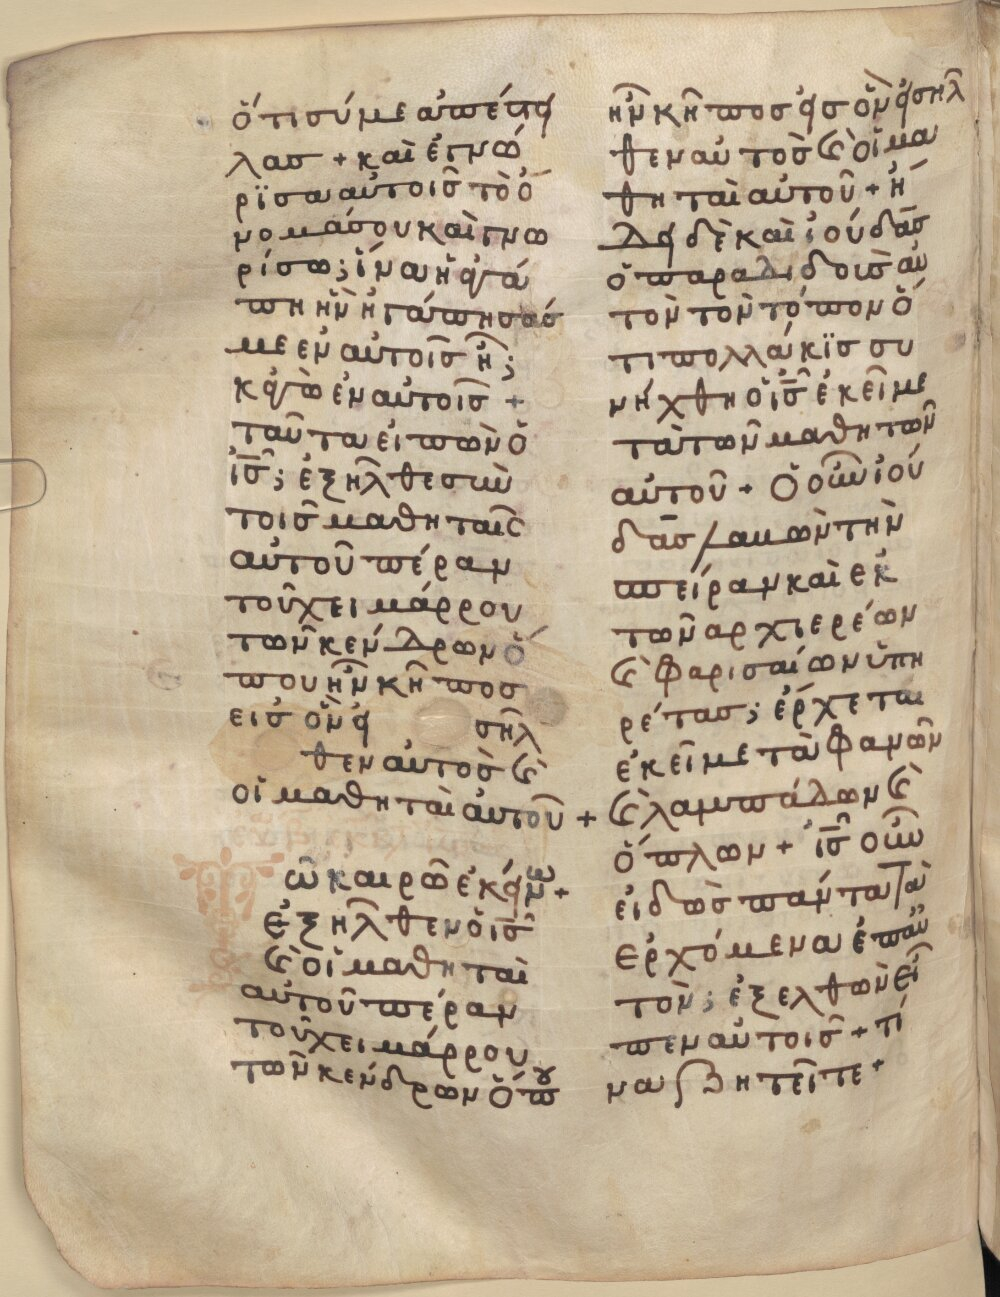 ὅτι σύ με ἀπέστει
λασ + καὶ ἐγνώ
ρϊσα αὐτοῖσ τὸ ὄ
νομά σου καὶ γνω
ρίσω ; ἵνα ἡ ἀγά
πη ἣν ἠγάπησάσ
με ἐν αὐτοῖσ ἦ ;
κἀγὼ ἐν αὐτοῖσ +
ταῦτα εἰπὼν ὁ
ἰ̅σ̅ ; ἐξῆλθε σὺν
τοῖσ μαθηταῖσ
αὐτοῦ πέραν
τοῦ χειμάρρου
τῶν κένδρων ὅ
που ἦν κῆποσ
εἰσ ὃν εἰσῆλ
θεν αὐτὸσ καὶ
οἱ μαθηταὶ αὐτοῦ +
ῶ καιρῶ ἐκείνω +
ἐξῆλθεν ὁ ἰ̅σ̅
καὶ οἱ μαθηταὶ
αὐτοῦ πέραν
τοῦ χειμάρρου
τῶν κένδρων ὅπου
ἦν κῆποσ εἰσ ὃν εἰσῆλ
θεν αὐτὸσ καὶ οἱ μα
θηταὶ αὐτοῦ + ἤ
δει δὲ καὶ ἰούδασ
ὁ παραδιδοὺσ αὐ
τὸν τὸν τόπον ὅ
τι πολλάκϊσ συ
νήχθη ὁ ἰ̅σ̅ ἐκεῖ με
τὰ τῶν μαθητῶν
αὐτοῦ + Ὁ οὖν ἰού
δασ λαβὼν τὴν
σπείραν καὶ ἐκ
τῶν αρχιερέων
καὶ φαρισαίων ὑπη
ρέτασ ; ἔρχεται
ἐκεῖ μετὰ φανῶν
καὶ λαμπάδων καὶ
ὅπλων + ἰ̅σ̅ οὖν
εἰδὼσ πάντα τὰ
ἐρχόμενα ἐπ αὐ
τὸν ; ἐξελθὼν εἶ
πεν αὐτοῖσ + τί
να ζητεῖτε +